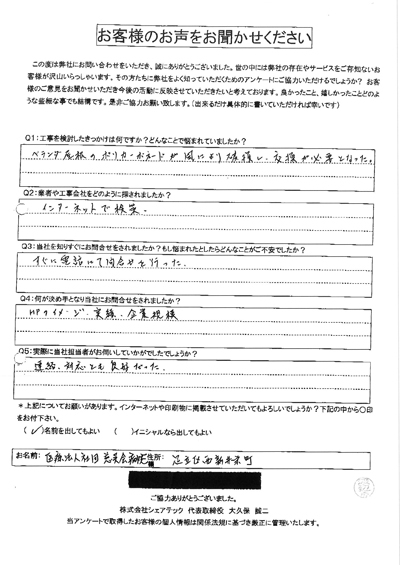 お客様のお声をお聞かせください
この度は弊社にお問い合わせをいただき、誠にありがとうございました。世の中には弊社の存在やサービスをご存知ないお
客様が沢山いらっしゃいます。その方たちに弊社をよく知っていただくためのアンケートにご協力いただけるでしょうか? お客
様のご意見をお聞かせいただき今後の活動に反映させていただきたいと考えております。良かったこと、嬉しかったことどのよ
うな些細な事でも結構です。是非ご協力お願い致します。(出来るだけ具体的に書いていただければ幸いです)
Q1:工事を検討したきっかけは何ですか?どんなことで悩まれていましたか?
ベランダ屋根のポリカーボネートが風により破損し、交換が必要となった。
Q2:業者や工事会社をどのように探されましたか?
インターネットで検索。
Q3:当社を知りすぐにお問合せをされましたか?もし悩まれたとしたらどんなことがご不安でしたか?
すぐに電話にて問合せを行った。
Q4:何が決め手となり当社にお問合せをされましたか?
HPのイメージ・実績・企業規模
Q5:実際に当社担当者がお伺いしていかがでしたでしょうか?
連絡、対応とも良好だった。
*上記についてお願いがあります。インターネットや印刷物に掲載させていただいてもよろしいでしょうか?下記の中から○印
をお付下さい。
(✓)名前を出してもよい ( )イニシャルなら出してもよい
お名前: 医療法人社団 住所: 足立区西新井栄町
ご協力ありがとうございました。
株式会社シェアテック 代表取締役 大久保 誠二
当アンケートで取得したお客様の個人情報は関係法規に基づき厳正に管理いたします。